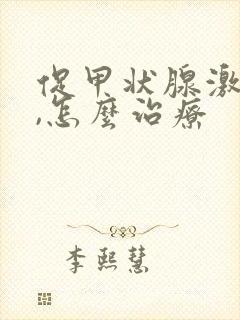 促甲状腺激
,怎麼治療
李熙慧